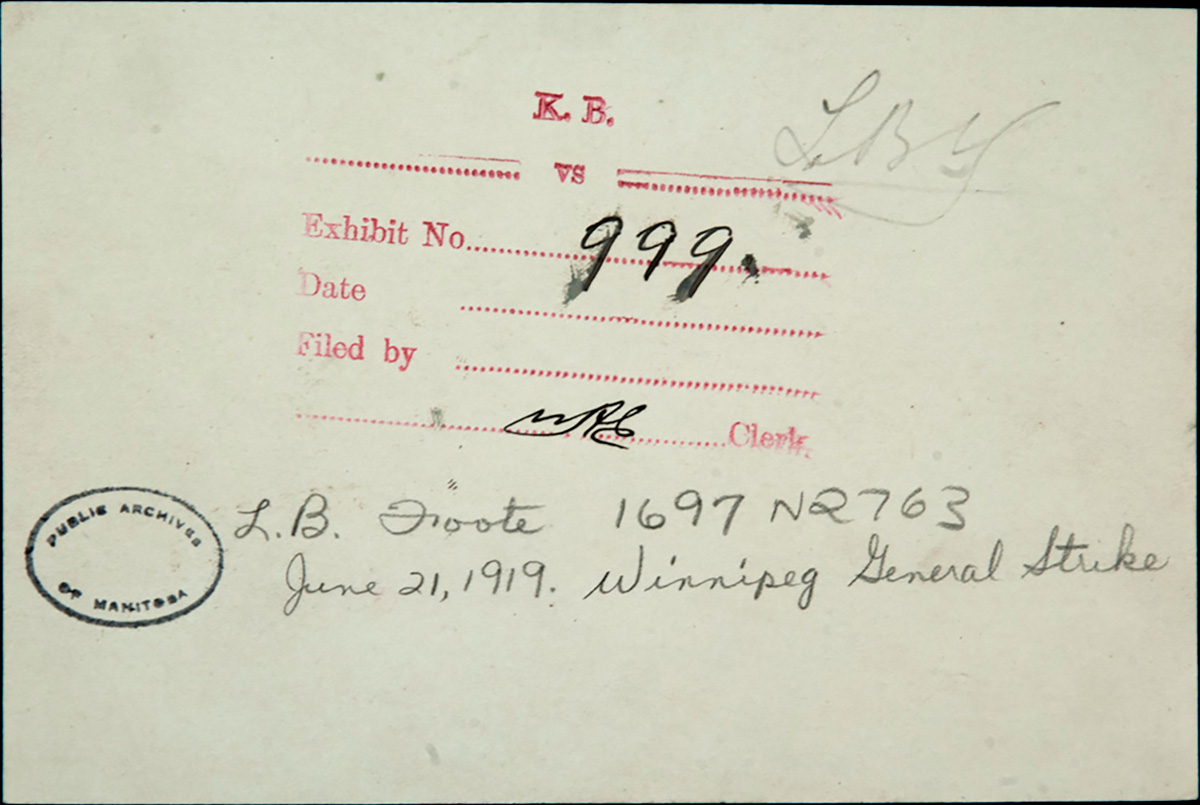 K. B.
vs
Exhibit No. 999.
Date
Filed by
Clerk.
L.B. Foote 1697 N2763
June 21, 1919. Winnipeg General Strike
PUBLIC ARCHIVES
OF MANITOBA